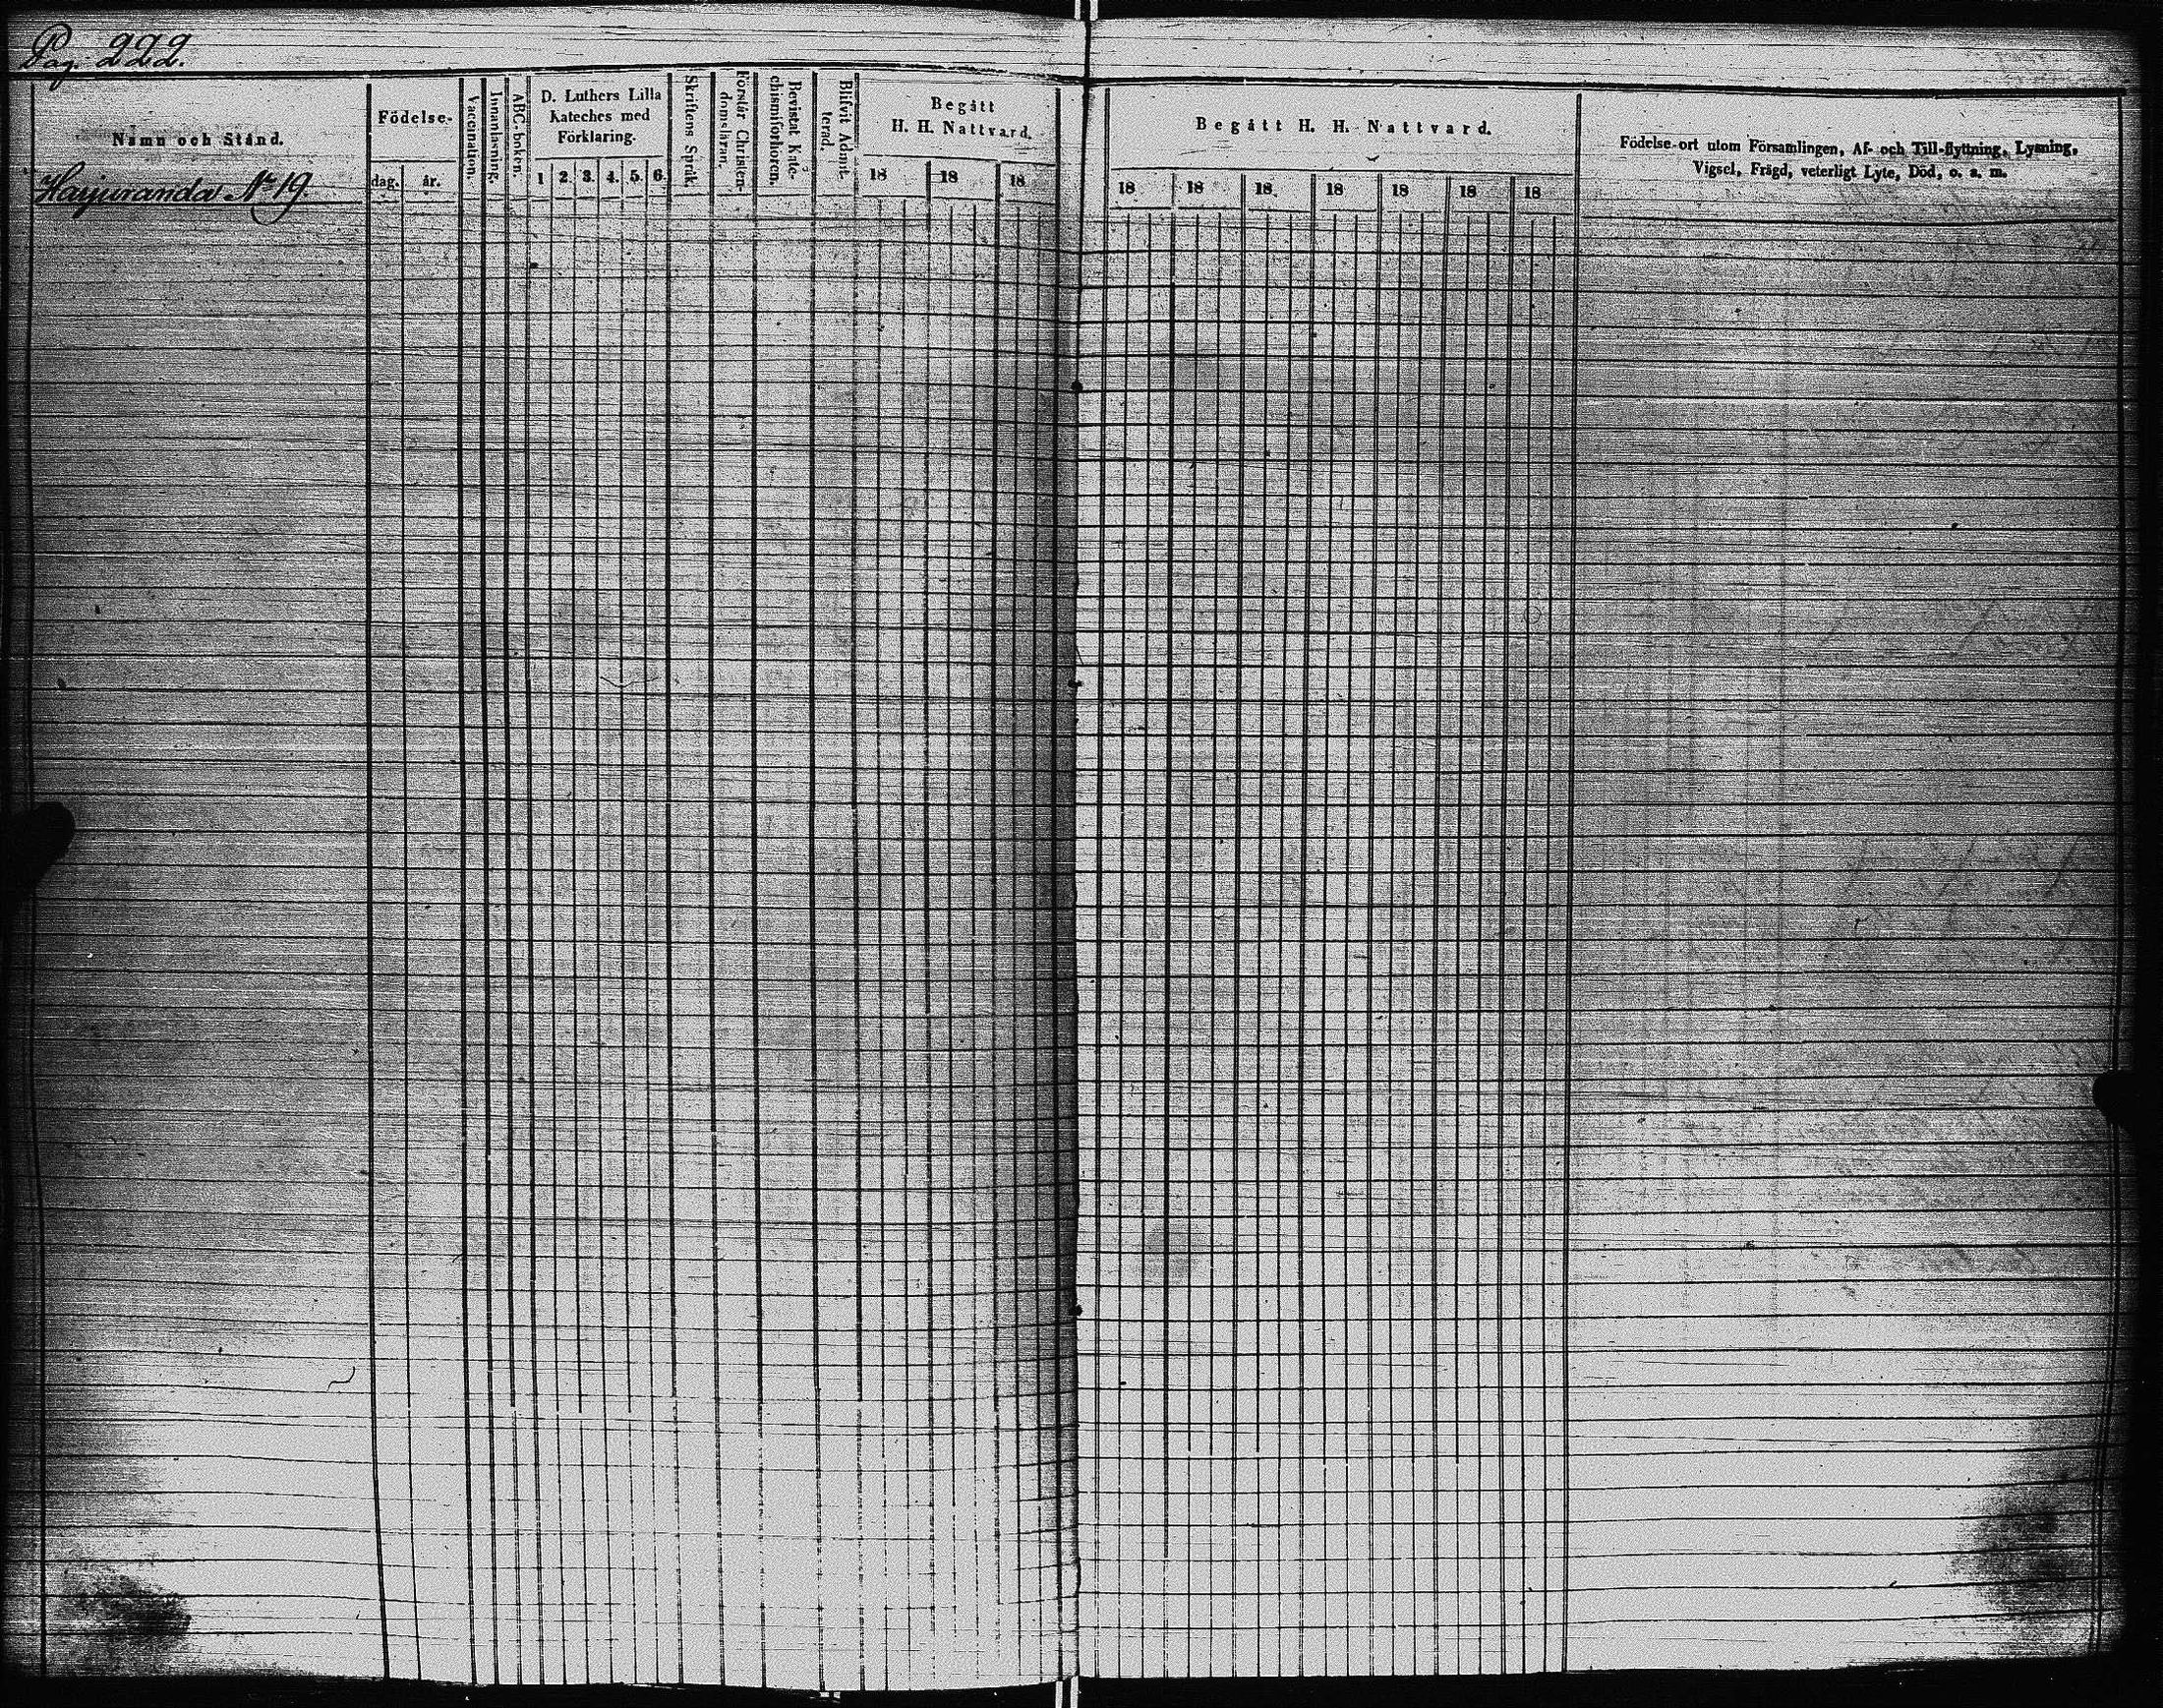 Pag. 222.
Namn och Stånd.
Födelse-
dag.
år.
Vaccination.
Innanläsning.
ABC-boken.
D. Luthers Lilla
Kateches med
Förklaring.
1 2. 3. 4. 5. 6.
Skriftens Språk.
Förstår Christen-
domsläran.
Bevistat Kate-
chismiförhören.
Blifvit Admit-
terad.
Begått
H. H. Nattvard.
18 18 18
Begått H. H. Nattvard.
18 18 18 18 18 18 18
Födelse-ort utom Församlingen, Af- och Till-flyttning, Lysning,
Vigsel, Frägd, veterligt Lyte, Död, o. s. m.
Harjuranda No 19